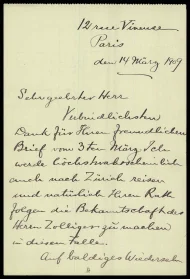 12 rue Vineuse
Paris
den 14 März 1909
Sehrgeehrter Herr
Verbindlichsten
Dank für Ihren freundlichen
Brief vom 3ten März. Ich
werde höchstwahrscheinlich
auch nach Zürich reisen
und natürlich Ihren Rath
folgen die Bekanntschaft des
Herrn Zolliger zu machen
in diesem Falle.
Auf baldiges Wiedersehn